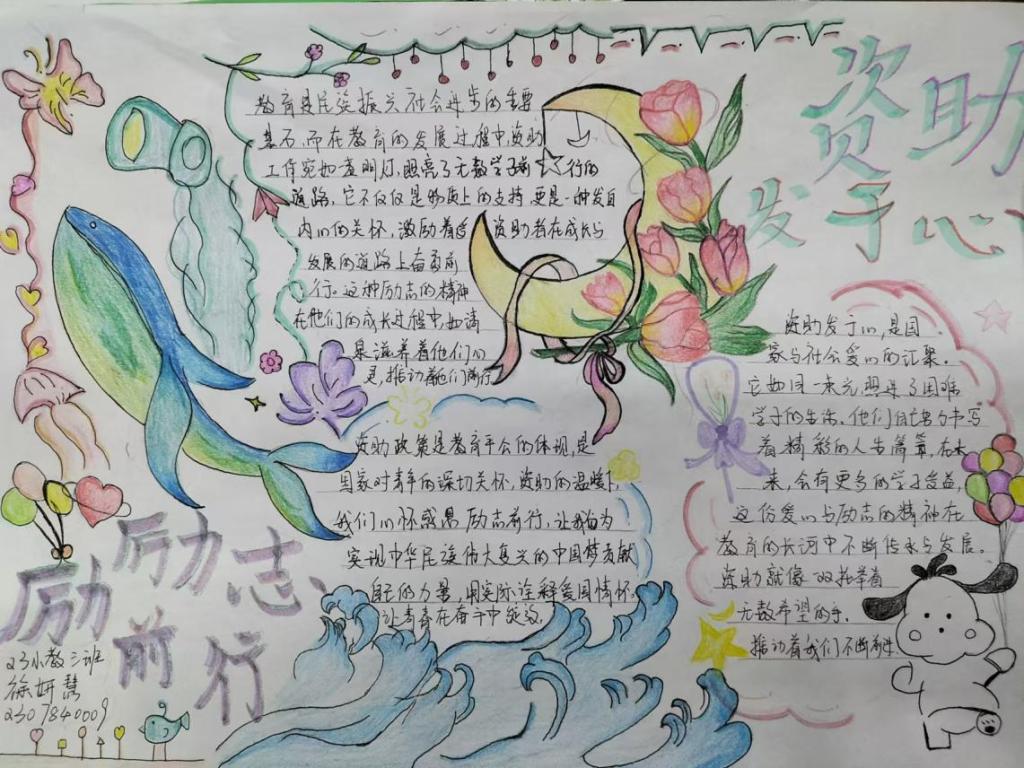 资助
发于心
教育是民族振兴社会进步的重要
基石,而在教育的发展过程中,资助
工作宛如一盏明灯,照亮了无数学子前行的
道路,它不仅仅是物质上的支持,更是一种发自
内心的关怀,激励着受资助者在成长与
发展的道路上奋勇前
行。这种励志的精神
在他们的成长过程中,如清
泉滋养着他们的心
灵,推动着他们前行
资助发于心,是国
家与社会爱心的汇聚。
它如同一束光,照进了困难
学子的生活,他们用努力书写
着精彩的人生篇章,在未
来,会有更多的学子受益,
这份爱心与励志的精神在
教育的长河中不断传承与发展。
资助就像一双托举着
无数希望的手,
推动着我们不断前进
资助政策是教育平公的体现,是
国家对青年的深切关怀,资助的温暖下,
我们心怀感恩励志前行,让我为
实现中华民族伟大复兴的中国梦贡献
自己的力量,用实际诠释爱国情怀,
让青春在奋斗中绽放。
励志、
励
前行
23小教三班
徐妍慧
2307840009